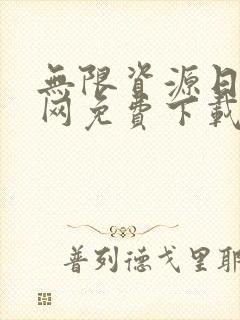 無限資源日
网免費下載
普列德戈里耶